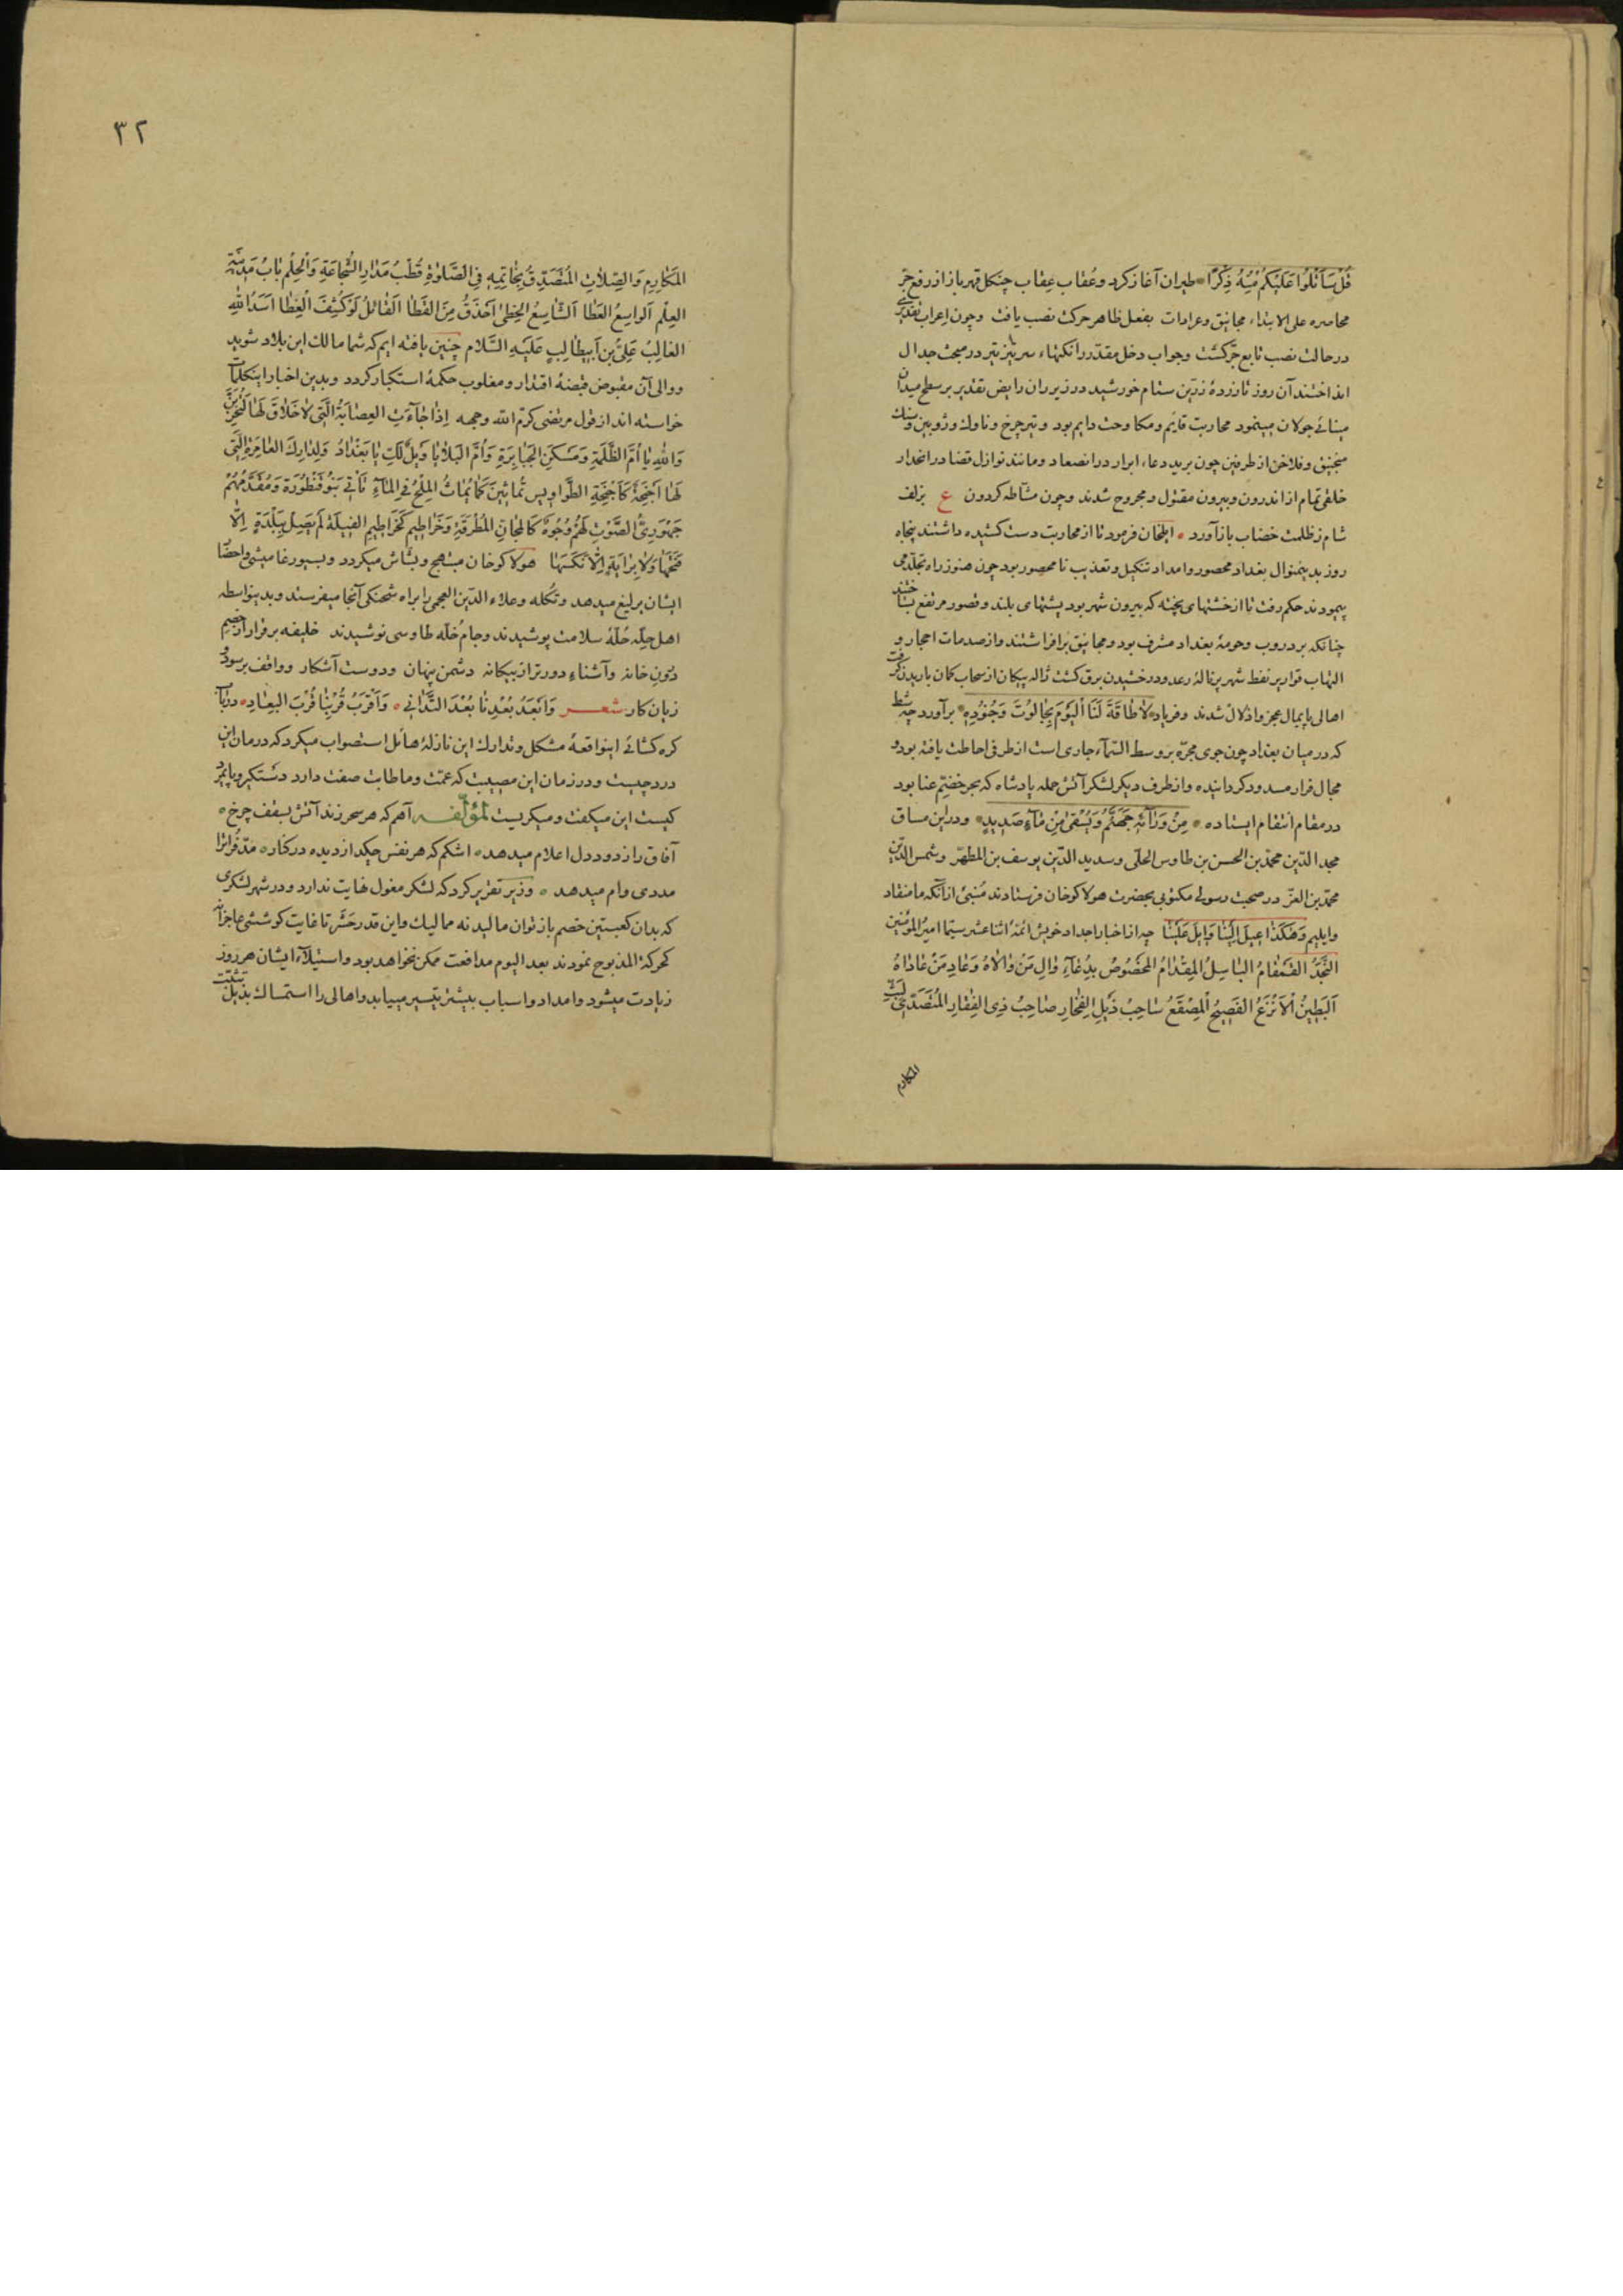 قُلْ سَأَتْلُوا عَلَيْكُمْ مِنْهُ ذِكْرًا طيران آغاز كرد و عُقاب عِقاب چنكل قهر باز از رفع جر
محاصره على الابتداء مجانيق و عرادات بفعل ظاهر حركت نصب يافت و چون اعراب تقديرى
در حالت نصب تابع جرّ كشت و جواب دخل مقدر را نكتهاء سر تيز تير در مبحث جدال
انداختند آن روز تا زردهٔ زرّين ستام خورشيد در زير ران رايض تقدير بر سطح ميدان
مينائى جولان مينمود محاربت قايم و مكاوحت دايم بود و تير چرخ و ناوك و زوبين و سنك
منجنيق و فلاخن از طرفين چون بريد دعاء ابرار در انصعاد و مانند نوازل قضا در انحدار
خلقى تمام از اندرون و بيرون مقتول و مجروح شدند و چون مشّاطه كردون ع بزلف
شام ز ظلمت خضاب باز آورد ايلخان فرمود تا از محاربت دست كشيده داشتند پنجاه
روز بدينمنوال بغداد محصور و امداد تنكيل و تعذيب نا محصور بود چون هنوز راه تجلّد مى
پيمودند حكم رفت تا از خشتهاى پخته كه بيرون شهر بود پشتهاى بلند و قصور مرتفع بساختند
چنانكه بر دروب و حومهٔ بغداد مشرف بود و مجانيق برافراشتند و از صدمات احجار و
التهاب قوارير نفط شهر پر نالهٔ رعد و درخشيدن برق كشت ژاله پيكان از سحاب كمان باريدن كرفت
اهالى پايمال عجز و اذلال شدند و فرياد لَا طَاقَةَ لَنَا الْيَوْمَ بِجَالُوتَ وَجُنُودِهِ برآورد چه شط
كه در ميان بغداد چون جوى مجرّه بر وسط السّمآء جارى است از طرفى احاطت يافته بود و
مجال فرار مسدود كردانيده و از طرف ديكر لشكر آتش حمله پادشاه كه بحر خضمّ عنا بود
در مقام انتقام ايستاده مِنْ وَرَائِهِ جَهَنَّمُ وَيُسْقَى مِنْ مَآءٍ صَدِيدٍ و در اين مساق
مجد الدّين محمّد بن الحسن بن طاوس الحلّى و سديد الدّين يوسف بن المطهّر و شمس الدّين
محمّد بن العزّ در صحبت رسولى مكتوبى بحضرت هولاكو خان فرستادند مُنبئ از آنكه ما منقاد
و ايليم وَهٰكَذَا عِيلَ إِلَيْنَا وَإِيلَ عَلَيْنَا چه از اخبار اجداد خويش ائمّهٔ اثنا عشر سيّما اميرُ المؤمنين
النَّجْدُ القَمْقَامُ البَاسِلُ المِقْدَامُ المَخْصُوصُ بِدُعَآءِ وَالِ مَنْ وَالَاهُ وَعَادِ مَنْ عَادَاهُ
اَلبَطِينُ الأَنْزَعُ الفَصِيحُ المِصْقَعُ سَاحِبُ ذَيْلِ الفِخَارِ صَاحِبُ ذِى الفِقَارِ المُتَصَدِّى لِبَثِّ
المكارم
٣٢
المَكَارِمِ وَالصِّلَاتِ المُتَصَدِّقُ بِخَاتِمِهِ فِى الصَّلَوٰةِ قُطْبُ مَدَارِ الشُّجَاعَةِ وَالحِلْمِ بَابُ مَدِينَةِ
العِلْمِ اَلوَاسِعُ العَطَا اَلشَّاسِعُ الخُطَىٰ أَحْذَقُ مِنَ القَطَا اَلقَائِلُ لَوْ كُشِفَ الغِطَا اَسَدُ اللهِ
الغَالِبُ عَلِىُّ بنِ اَبِيطَالِبٍ عَلَيْهِ السَّلَام چنين يافته ايم كه شما مالك اين بلاد شويد
و والى آن مقبوض قبضهٔ اقتدار و مغلوب حكمهٔ استكبار كردد و بدين اخبار اينكلمات
خواسته اند از قول مرتضى كرّم الله وجهه اِذَا جَآءَتِ العِصَابَةُ الَّتِى لَا خَلَاقَ لَهَا لَتَخْرَبَنَّ
وَاللهِ يَا أُمَّ الظَّلَمَةِ وَمَسْكَنَ الجَبَابِرَةِ وَأُمَّ البَلَايَا وَيْلٌ لَكِ يَا بَغْدَادُ وَلِدَارِكِ العَامِرَةِ الَّتِى
لَهَا اَجْنِحَةٌ كَأَجْنِحَةِ الطَّوَاوِيسِ تُمَاثِينَ كَمَا يُمَاثُ المِلْحُ فِى المَآءِ تَأْتِى بَنُو قَنْطُورَةَ وَمُقَدَّمُهُمْ
جَهْوَرِىُّ الصَّوْتِ لَهُمْ وُجُوهٌ كَالمَجَانِّ المُطْرَقَةِ وَخَرَاطِيمُ كَخَرَاطِيمِ الفِيَلَةِ لَمْ يَصِلْ بِبَلْدَةٍ اِلَّا
فَتَحَهَا وَلَا بِرَايَةٍ اِلَّا نَكَسَهَا هولاكو خان مبتهج و بشاش ميكردد و بسيورغاميشى و احضار
ايشان يرليغ ميدهد و تكله و علاء الدّين العجمى را براه شحنكى آنجا ميفرستد و بدينواسطه
اهل حِلّه حُلّهٔ سلامت پوشيدند و جام خُلّه طاوسى نوشيدند خليفه بر قرار از خصم
درونِ خانه و آشناءِ دورتر از بيكانه دشمن پنهان و دوست آشكار و واقف بر سود و
زيان كار شعر وَاَبْعَدُ بُعْدِنَا بُعْدَ التَّدَانِى وَاَقْرَبُ قُرْبِنَا قُرْبَ البِعَادِ در باب
كره كشائى اينواقعهٔ مشكل و تدارك اين نازلهٔ هائل استصواب ميكرد كه درمان اين
درد چيست و در زمان اين مصيبت كه عمّت و ما طابت صفت دارد دستكير و پايمرد
كيست اين ميكفت و ميكريست لمؤلّفه آهم كه هر سحر زند آتش بسقف چرخ
آفاق را ز دود دل اعلام ميدهد اشكم كه هر نفس چكد از ديده در كنار مدّ فُرات را
مددى وام ميدهد وزير تقرير كرد كه لشكر مغول نهايت ندارد و در شهر لشكرى
كه بدان كعبتين خصم باز توان ماليد نه مماليك و اين قدر حَشَر تا غايت كوششى عاجزانه
كحركة المذبوح نمودند بعد اليوم مدافعت ممكن نخواهد بود و استيلآء ايشان هر روز
زيادت ميشود و امداد و اسباب بيشتر تيسير مييابد و اهالى را استمساك بذيل تثبّت